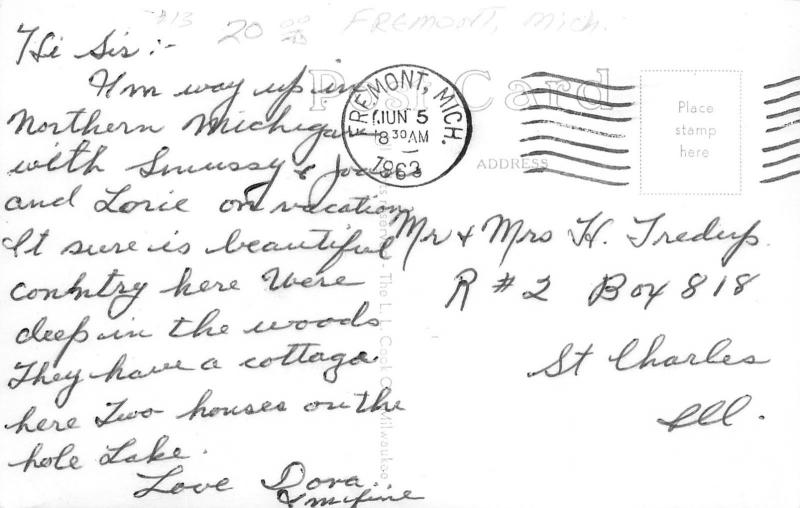 #13 20 00 FREMONT, Mich.
Post Card
FREMONT, MICH.
JUN 5
8 30 AM
1963
Place
stamp
here
ADDRESS
Hi Sis:-
I'm way up in
Northern Michigan
with Smussy &
and Lorie on vacation
It sure is beautiful
conhntry here Were
deep in the woods
They have a cottage
here Two houses on the
hole Lake.
Love Dora
I'm fine
Mr & Mrs H. Tredup.
R #2 Box 818
St Charles
Ill.
s reserved - The L. L. Cook Co. Milwaukee